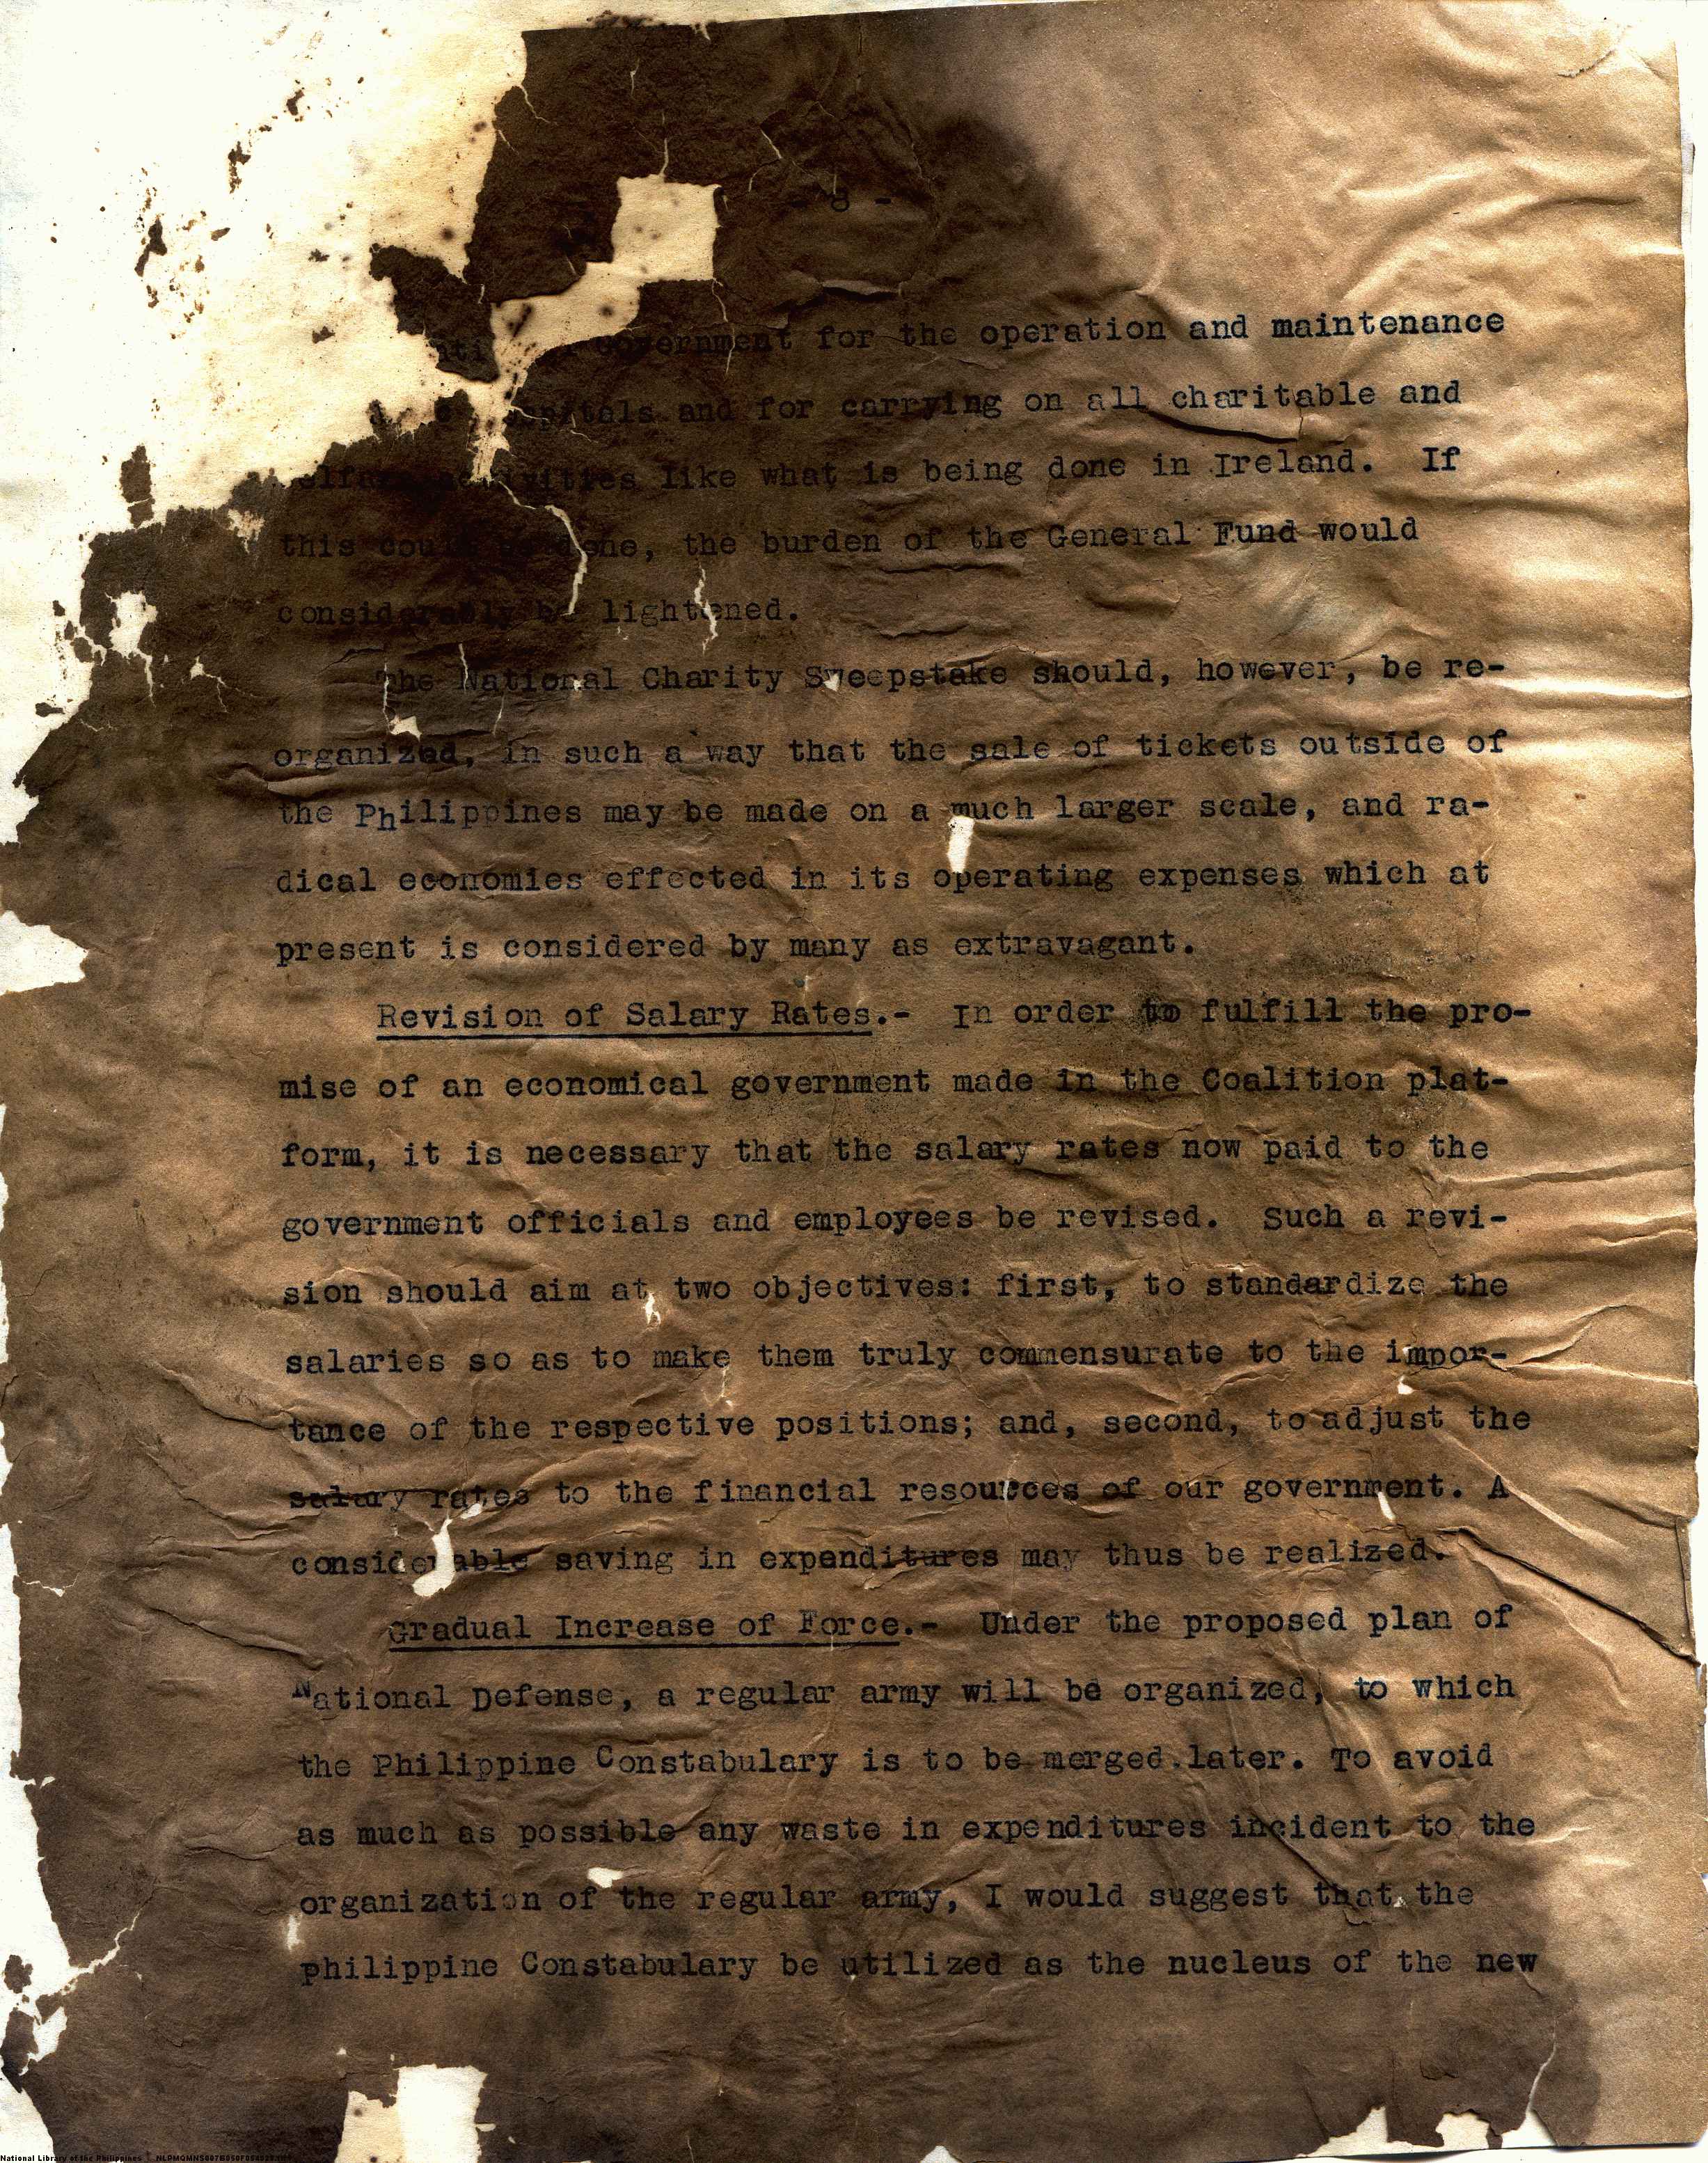 - 8 -
Government for the operation and maintenance
and for carrying on all charitable and
activities like what is being done in Ireland. If
this could be done, the burden of the General Fund would
considerably be lightened.
The National Charity Sweepstake should, however, be re-
organized, in such a way that the sale of tickets outside of
the Philippines may be made on a much larger scale, and ra-
dical economies effected in its operating expenses which at
present is considered by many as extravagant.
Revision of Salary Rates.- In order to fulfill the pro-
mise of an economical government made in the Coalition plat-
form, it is necessary that the salary rates now paid to the
government officials and employees be revised. Such a revi-
sion should aim at two objectives: first, to standardize the
salaries so as to make them truly commensurate to the impor-
tance of the respective positions; and, second, to adjust the
salary rates to the financial resources of our government. A
considerable saving in expenditures may thus be realized.
Gradual Increase of Force.- Under the proposed plan of
National Defense, a regular army will be organized, to which
the Philippine Constabulary is to be merged later. To avoid
as much as possible any waste in expenditures incident to the
organization of the regular army, I would suggest that the
Philippine Constabulary be utilized as the nucleus of the new
National Library of the Philippines